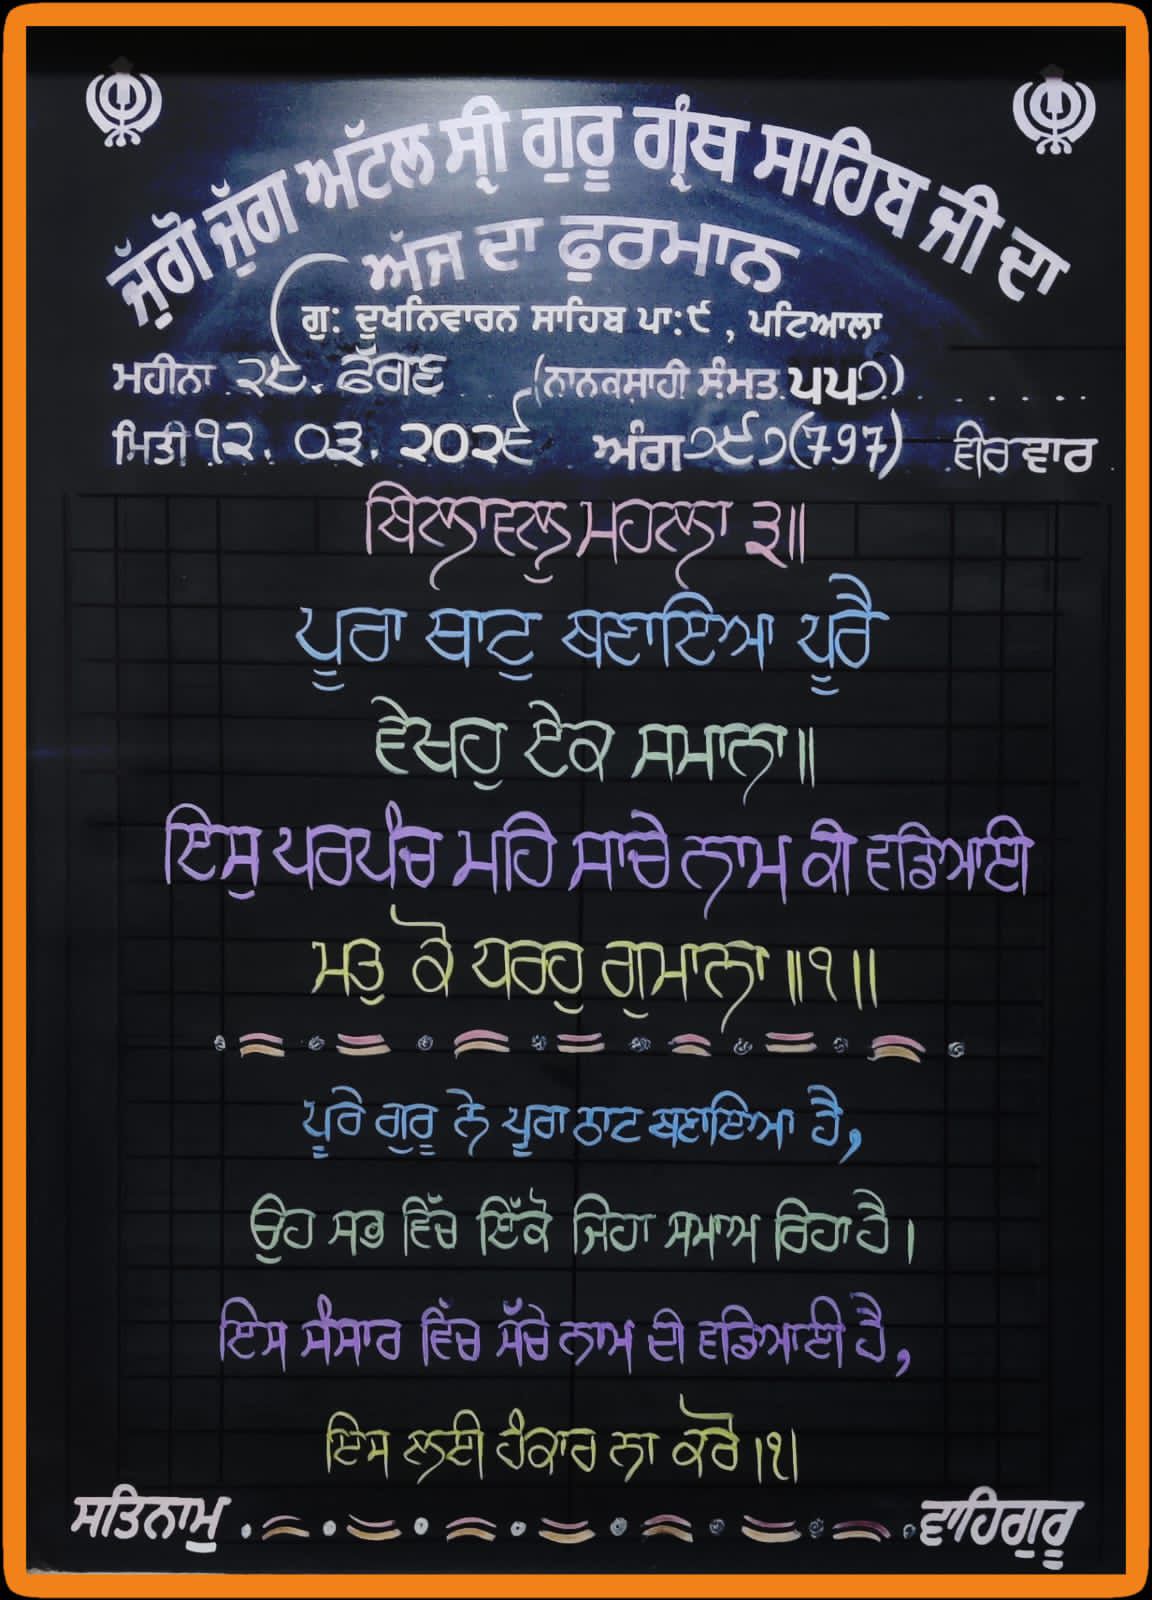 ਜੁੱਗੋ ਜੁੱਗ ਅਟੱਲ ਸ੍ਰੀ ਗੁਰੂ ਗ੍ਰੰਥ ਸਾਹਿਬ ਜੀ ਦਾ
ਅੱਜ ਦਾ ਫੁਰਮਾਨ
ਗੁ: ਦੂਖਨਿਵਾਰਨ ਸਾਹਿਬ ਪਾ:੯, ਪਟਿਆਲਾ
ਮਹੀਨਾ ੨੯. ਫੱਗਣ (ਨਾਨਕਸ਼ਾਹੀ ਸੰਮਤ ੫੫੭)
ਮਿਤੀ ੧੨. ੦੩. ੨੦੨੬ ਅੰਗ ੭੯੭ (797) ਵੀਰਵਾਰ
ਬਿਲਾਵਲੁ ਮਹਲਾ ੩॥
ਪੂਰਾ ਥਾਟੁ ਬਣਾਇਆ ਪੂਰੈ
ਵੇਖਹੁ ਏਕ ਸਮਾਨਾ॥
ਇਸੁ ਪਰਪੰਚ ਮਹਿ ਸਾਚੇ ਨਾਮ ਕੀ ਵਡਿਆਈ
ਮਤੁ ਕੋ ਧਰਹੁ ਗੁਮਾਨਾ॥੧॥
ਪੂਰੇ ਗੁਰੂ ਨੇ ਪੂਰਾ ਠਾਟ ਬਣਾਇਆ ਹੈ,
ਉਹ ਸਭ ਵਿੱਚ ਇੱਕੋ ਜਿਹਾ ਸਮਾਅ ਰਿਹਾ ਹੈ।
ਇਸ ਸੰਸਾਰ ਵਿੱਚ ਸੱਚੇ ਨਾਮ ਦੀ ਵਡਿਆਈ ਹੈ,
ਇਸ ਲਈ ਹੰਕਾਰ ਨਾ ਕਰੋ।੧।
ਸਤਿਨਾਮੁ ਵਾਹਿਗੁਰੂ